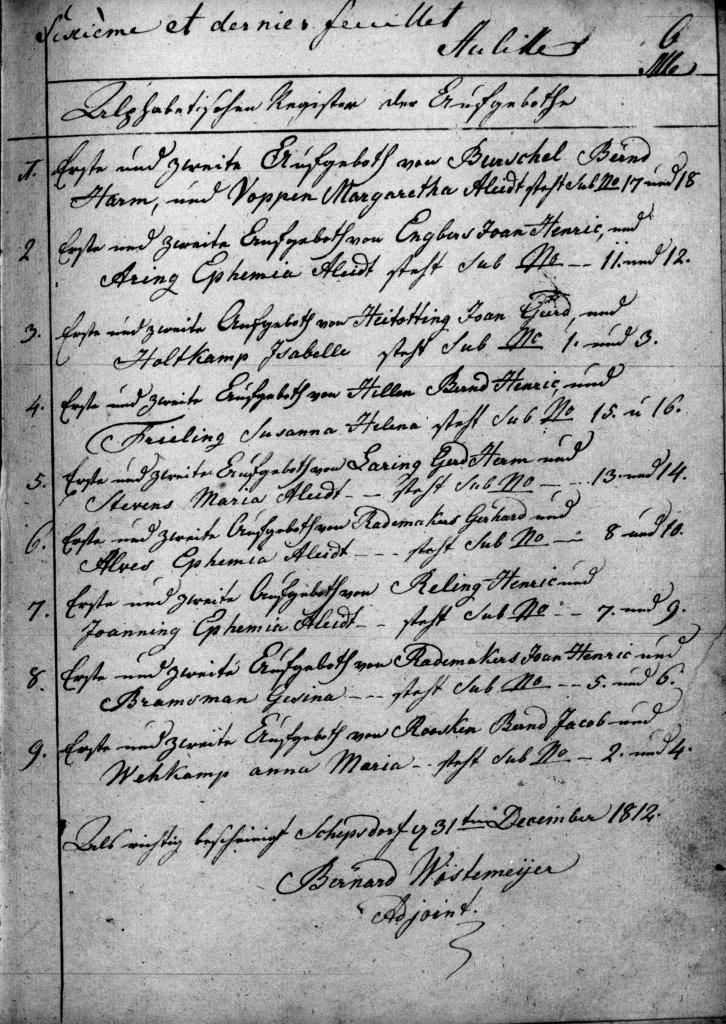 Sixième et dernier feuillet
6
Alphabetischen Register der Aufgebothe
1. Erste und zweite Aufgeboth von Burschel Bernd
Harm, und Voppen Margaretha Aleidt steht Sub No 17 und 18
2 Erste und zweite Aufgeboth von Engbers Joan Henric, und
Aring Ephemia Aleidt steht Sub No -- 11. und 12.
3. Erste und zweite Aufgeboth von Heitotting Joan Gerd, und
Holtkamp Isabelle steht Sub No 1. und 3.
4. Erste und zweite Aufgeboth von Hillen Bernd Henric, und
Frieling Susanna Helena steht Sub No 15. u 16.
5. Erste und zweite Aufgeboth von Laring Gerd Herm und
Stevens Maria Aleidt -- steht Sub No -- 13. und 14.
6. Erste und zweite Aufgeboth von Rademakers Gerhard und
Alves Ephemia Aleidt --- steht Sub No -- 8 und 10.
7. Erste und zweite Aufgeboth von Reling Henric und
Joanning Ephemia Aleidt -- steht Sub No - 7. und 9.
8. Erste und zweite Aufgeboth von Rademakers Joan Henric und
Bramsman Gesina --- steht Sub No -- 5. und 6.
9. Erste und zweite Aufgeboth von Roosken Bernd Jacob und
Wehkamp anna Maria -- steht Sub No - 2. und 4.
Als richtig bescheinigt Schepsdorf d 31ten December 1812.
Bernard Wöstemeyer
Adjoint.